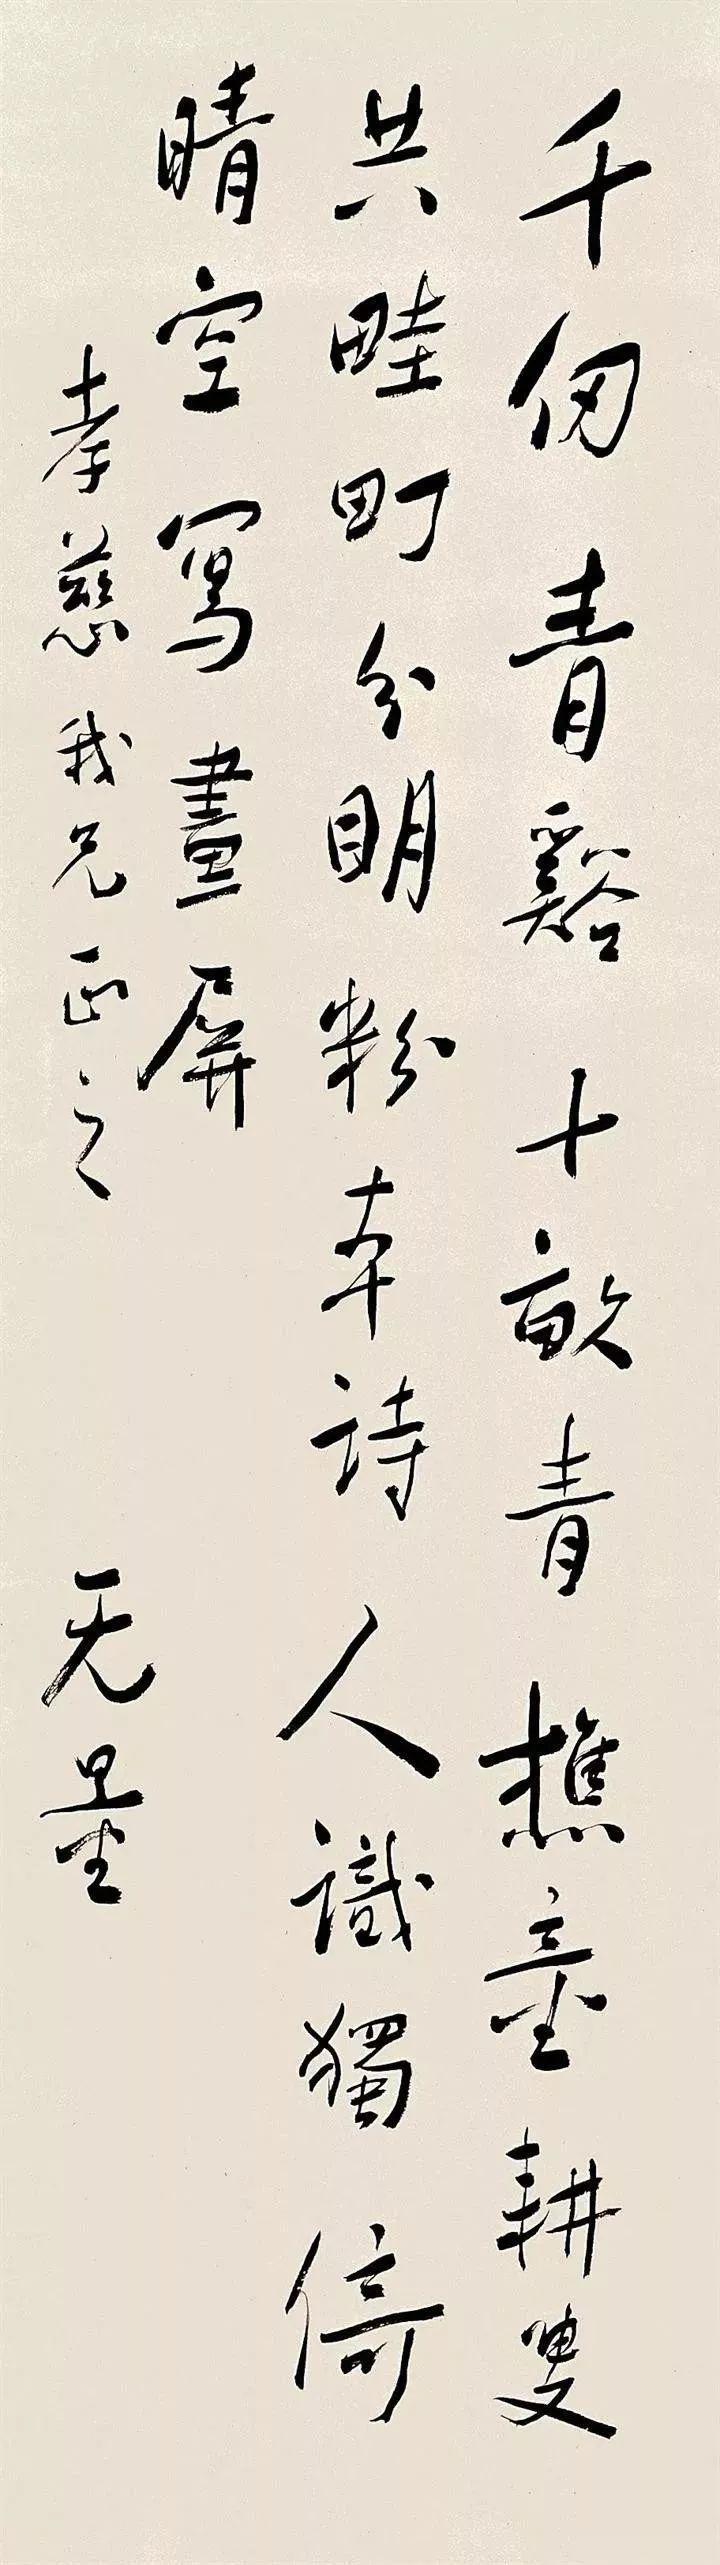 千仞青谿十畝青樵童耕叟
共畦町分明粉本詩人識獨倚
晴空寫畫屏
孝慈我兄正之
无量